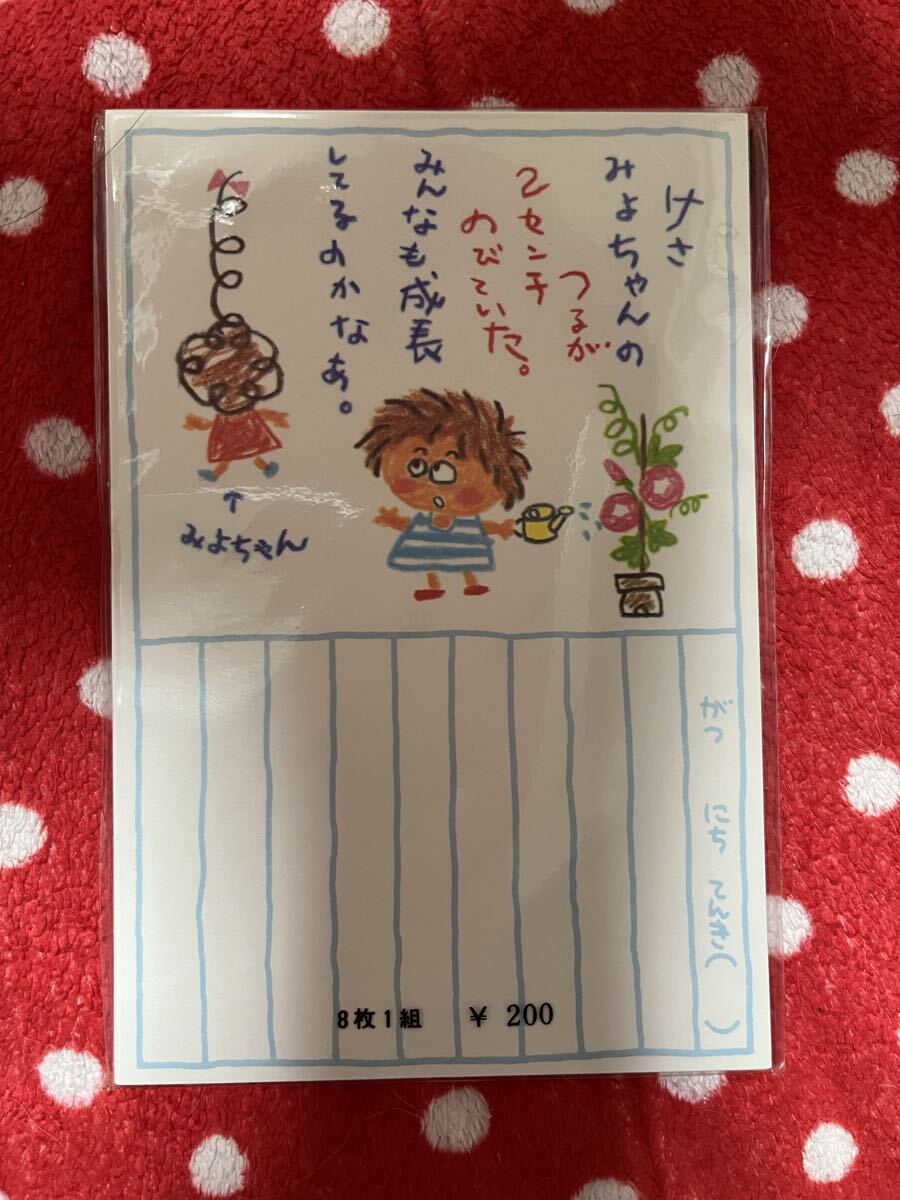 けさ
みよちゃんの
つるが
2センチ
のびていた。
みんなも成長
してるのかなあ。
↑
みよちゃん
がつ にち てんき( )
8枚1組 ¥ 200